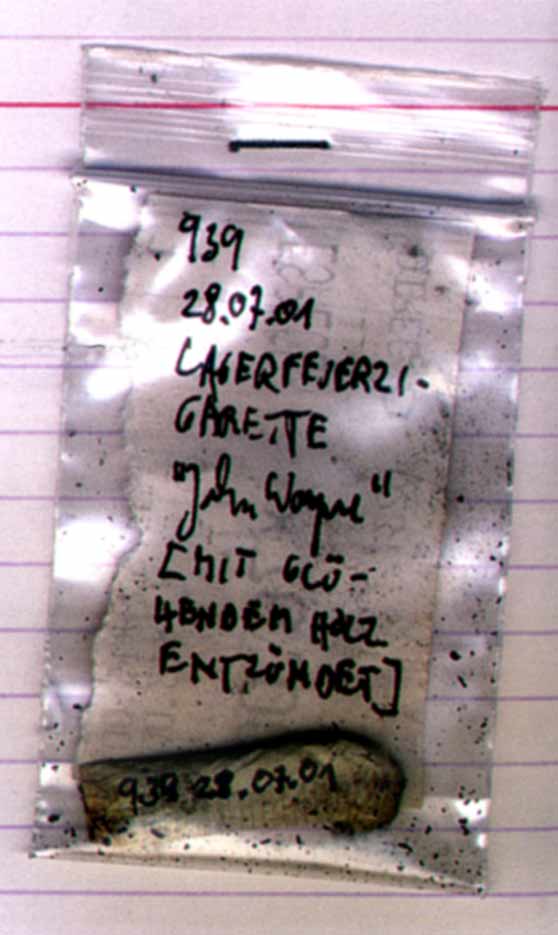 939
28.07.01
LAGERFEUERZI-
GARETTE
"John Wayne"
[MIT GLÜ-
HENDEM HOLZ
ENTZÜNDET]
939 28.07.01